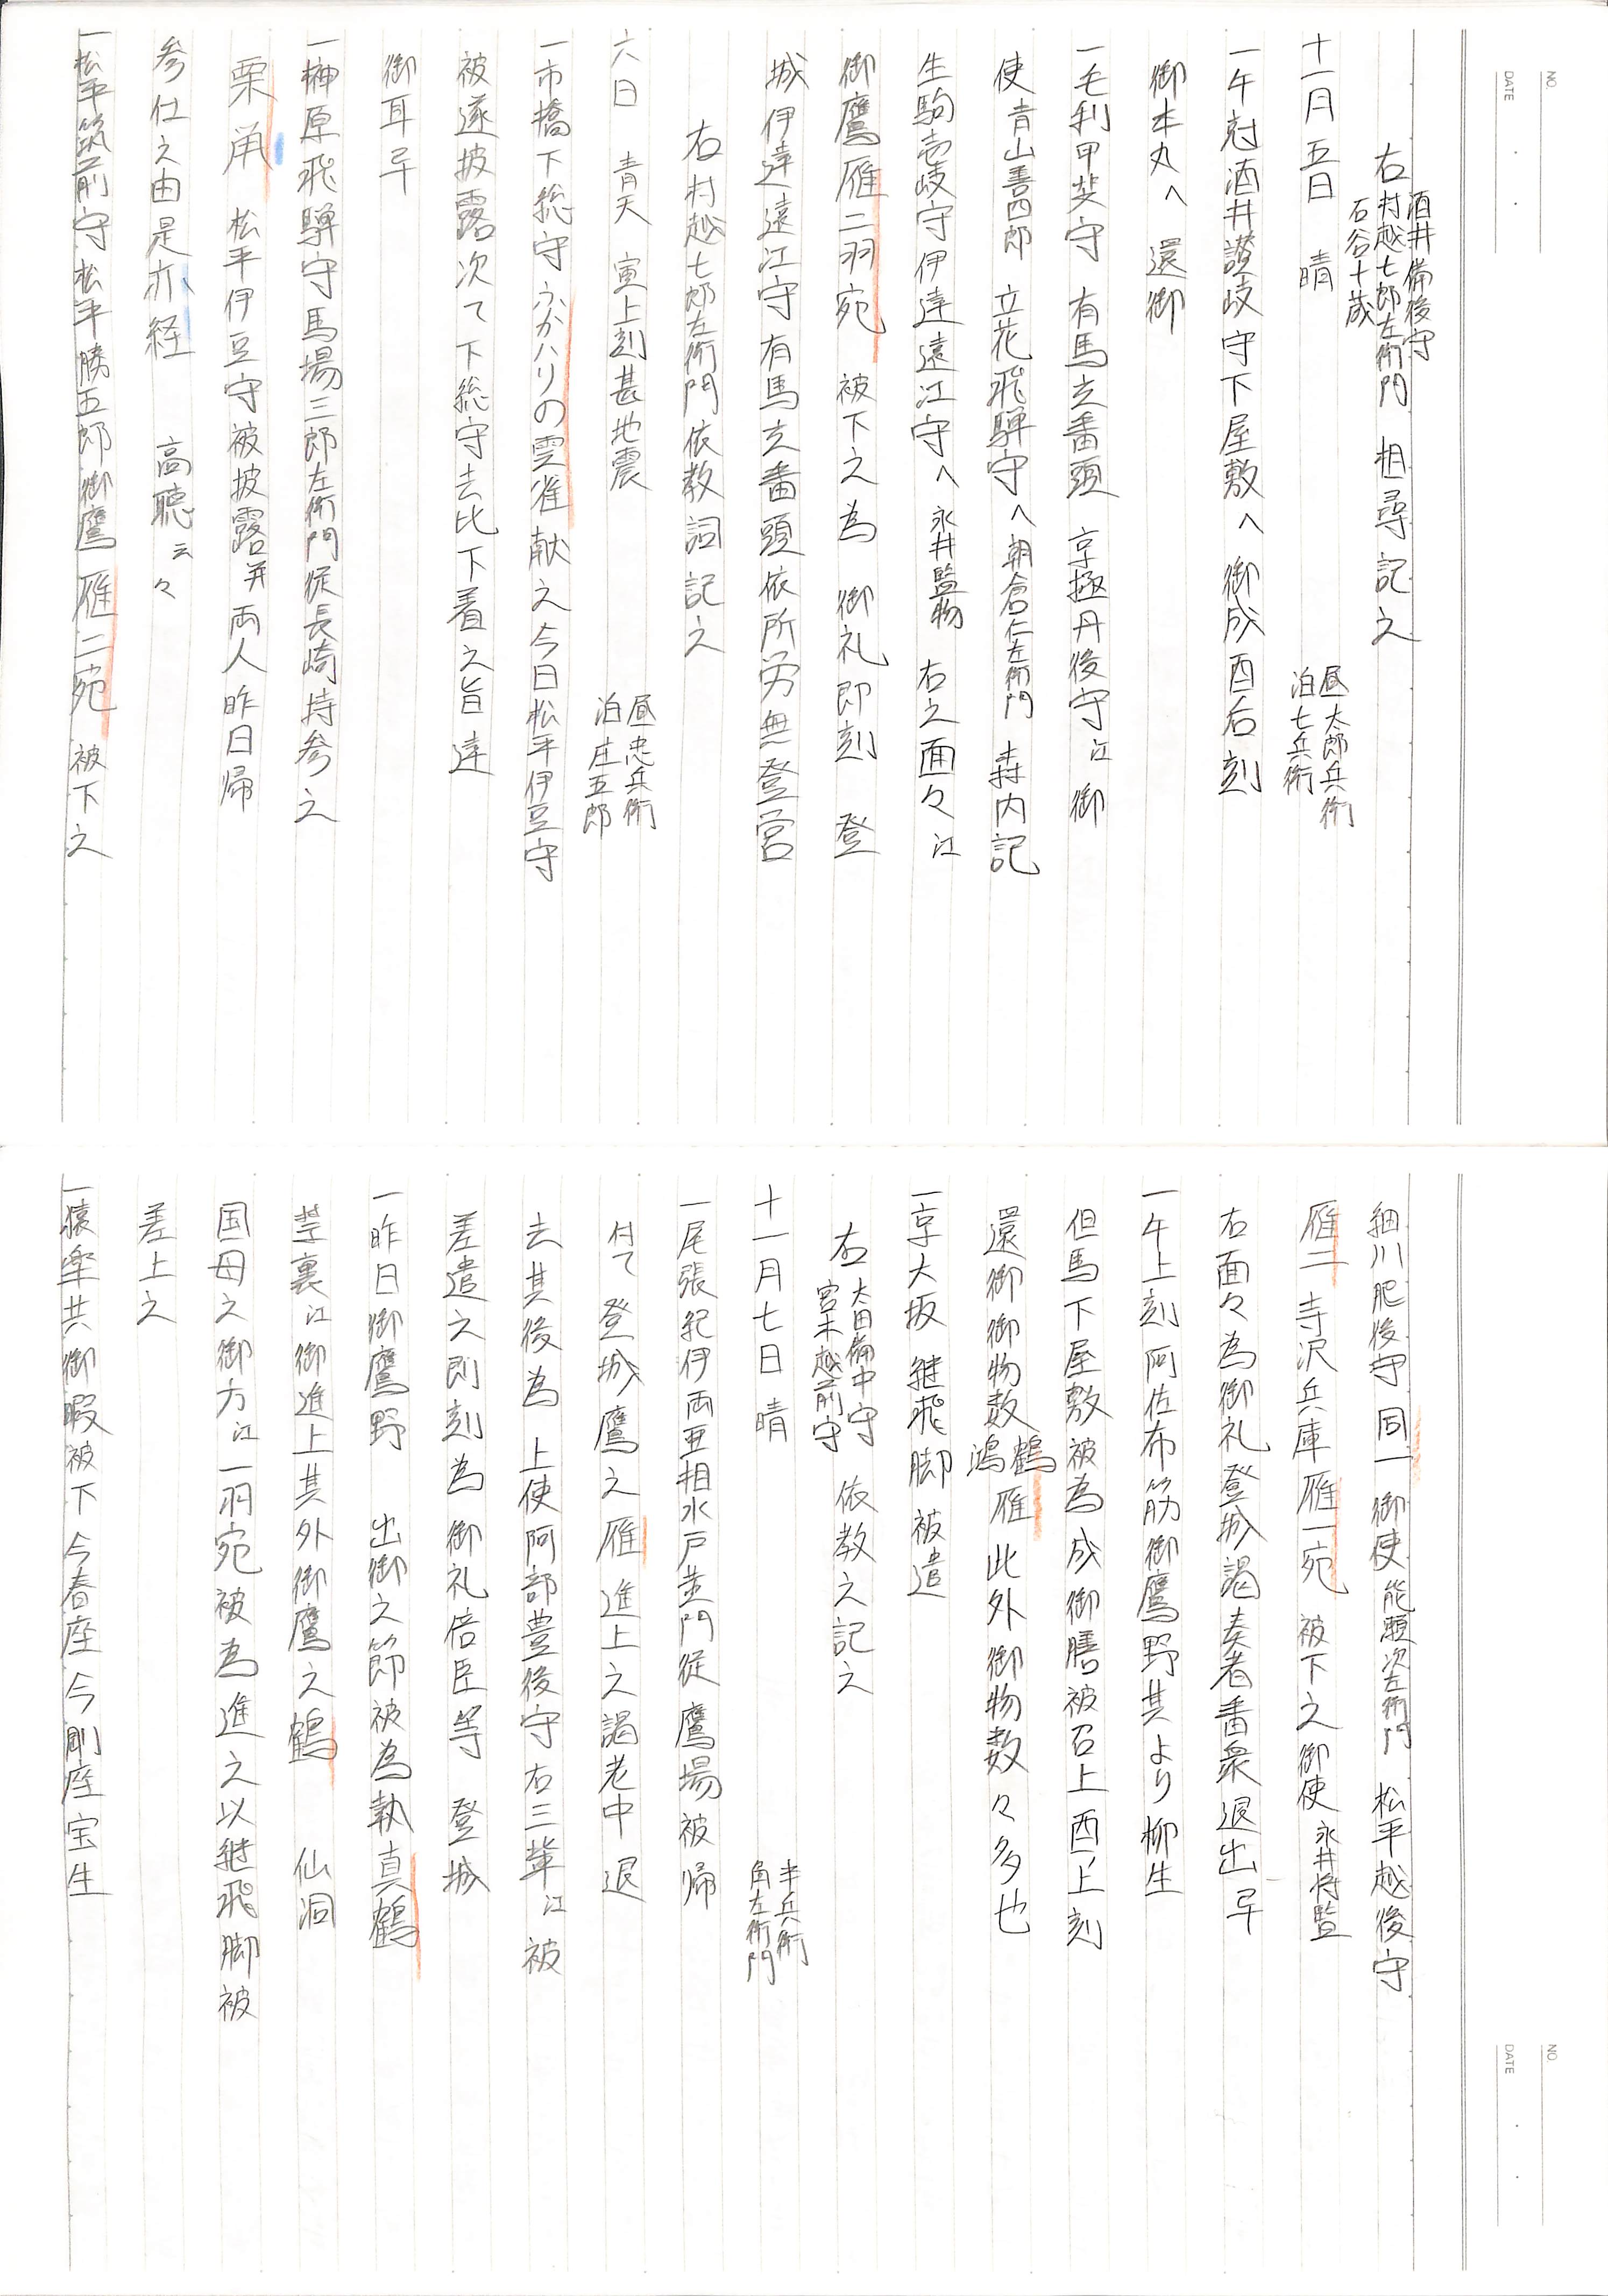 NO.
DATE
酒井備後守
右村越七郎左衛門 相尋記之
石谷十蔵
十一月五日 晴 昼太郎兵衛
泊七兵衛
一午刻酒井讃岐守下屋敷へ 御成酉后刻
御本丸へ 還御
一毛利甲斐守 有馬玄番頭 京極丹後守江御
使青山善四郎 立花飛騨守へ朝倉仁左衛門 森内記
生駒壱岐守伊達遠江守へ 永井監物 右之面々江
御鷹雁二羽宛 被下之為 御礼即刻 登
城伊達遠江守有馬玄番頭依所労無登営
右村越七郎左衛門依教詞記之
六日 青天 寅上刻甚地震 昼忠兵衛
泊庄五郎
一市橋下総守ふかハりの雲雀献之今日松平伊豆守
被遂披露次て下総守去比下着之旨達
御耳早
一榊原飛騨守馬場三郎左衛門従長崎持参之
栗 松平伊豆守被披露并両人昨日帰
参仕之由是亦経 高聴云々
一松平筑前守松平勝五郎御鷹雁二宛 被下之
NO.
DATE
細川肥後守同一御使能勢次左衛門 松平越後守
雁二 寺沢兵庫雁一宛 被下之御使永井将監
右面々為御礼登城謁奏者番衆退出早
一午上刻阿佐布筋御鷹野其より柳生
但馬下屋敷被為成御膳被召上酉上刻
還御御物数鶴鴻雁此外御物数々多也
一京大坂継飛脚被遣
右太田備中守 依教之記之
宮木越前守
十一月七日 晴 半兵衛
角左衛門
一尾張紀伊両亜相水戸黄門従鷹場被帰
付て 登城鷹之雁進上之謁老中退
去其後為 上使阿部豊後守右三輩江被
差遣之即刻為御礼倍臣等 登城
一昨日御鷹野 出御之節被為執真鶴
禁裏江御進上其外御鷹之鶴 仙洞
国母之御方江一羽宛被為進之以継飛脚被
差上之
一猿楽共御暇被下今春座今剛座宝生